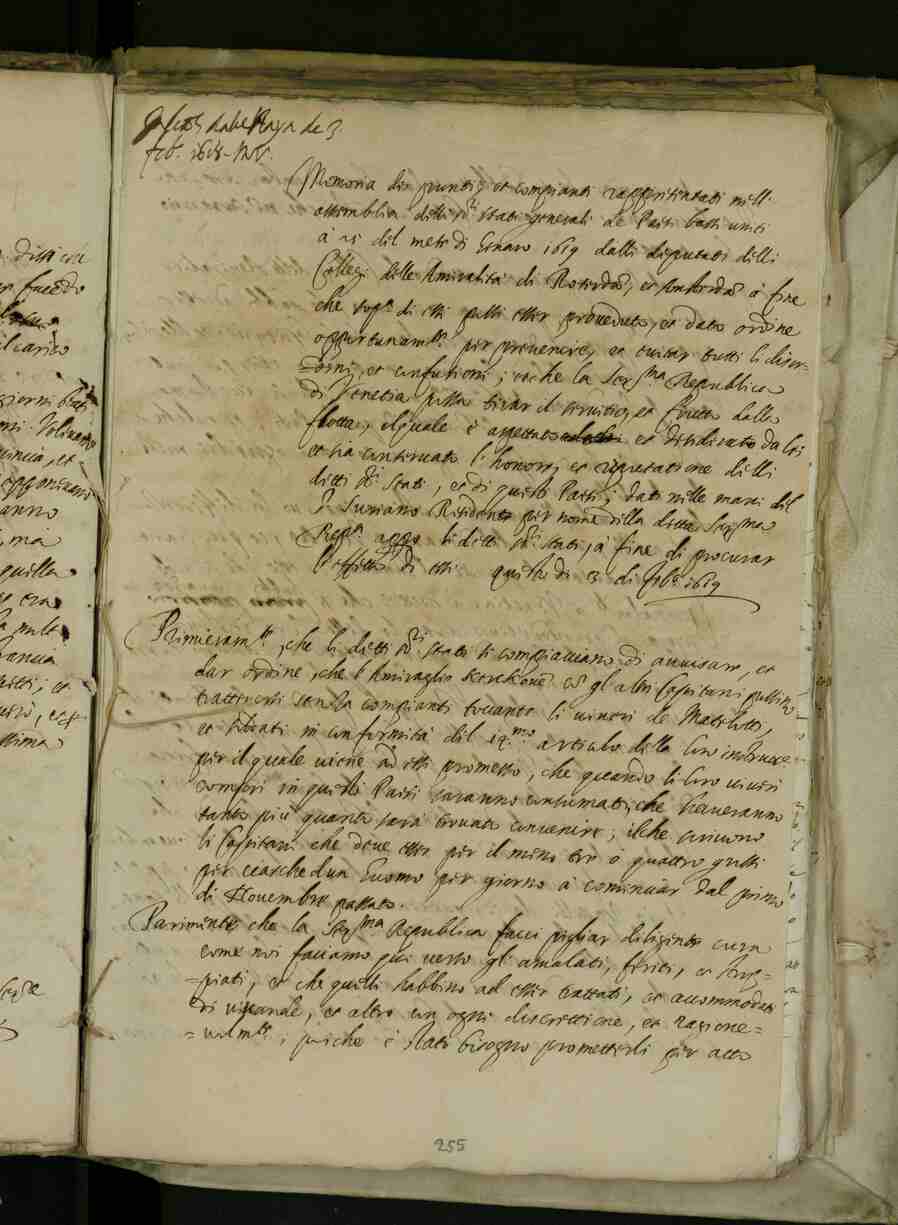 dall'Haya de 3
feb.º 1618 M.V.
Memoria dei punti, et compianti rappresentati nell'
assemblia delli ss.ri stati generali de Paesi bassi uniti
à 25 del mese di Genaro 1619 dalli deputati delli
Collegi delle Amiralità di Roterdam, et Amsterdam à fine
che sop.ª di essi possi esser proveduto, et dato ordine
opportunam.te per prevenire, et evitar tutti li disor=
=dini, et confusioni; et che la Ser.ma Republica
di Venetia possa tirar il servitio, et frutto dalla
flotta, il quale è aspettato et desiderato da lei
et sia continuato l'honore, et riputatione delli
ditti ss.ri Stati, et di questi Paesi; dati nelle mani del
S. Suriano Residente per nome della ditta Ser.ma
Rep.ca appo li ditti ss.ri stati, à fine di procurar
l'effetto di essi questo dì 3 di feb.º 1619
Primieram.te, che li ditti ss.ri stati si compiacciano di avvisare, et
dar ordine, che l'Amiraglio et gli altri Capitani possino
trattenersi senza compianti toccante li viveri de Matelotti,
et soldati in conformità del 14.mo articolo della loro instruttᵉ
per il quale viene ad essi promesso, che quando li loro viveri
compri in questi Paesi saranno consumati, che haveranno
tanto più quanto sarà trovato convenire; ilche scrivono
li Capitani che deve esser per il meno tre ò quattro grossi
per ciaschedun huomo per giorno à cominciar dal primo
di Novembre passato.
Parimente che la Ser.ma Republica facci pigliar diligente cura
come noi faciamo qui verso gli amalati, feriti, et strop=
=piati, et che quelli habbino ad esser trattati, et accommodati
di vivande, et altro con ogni discrettione, et ragione=
=volm.te; poiche è stato bisogno prometterli per atto
255